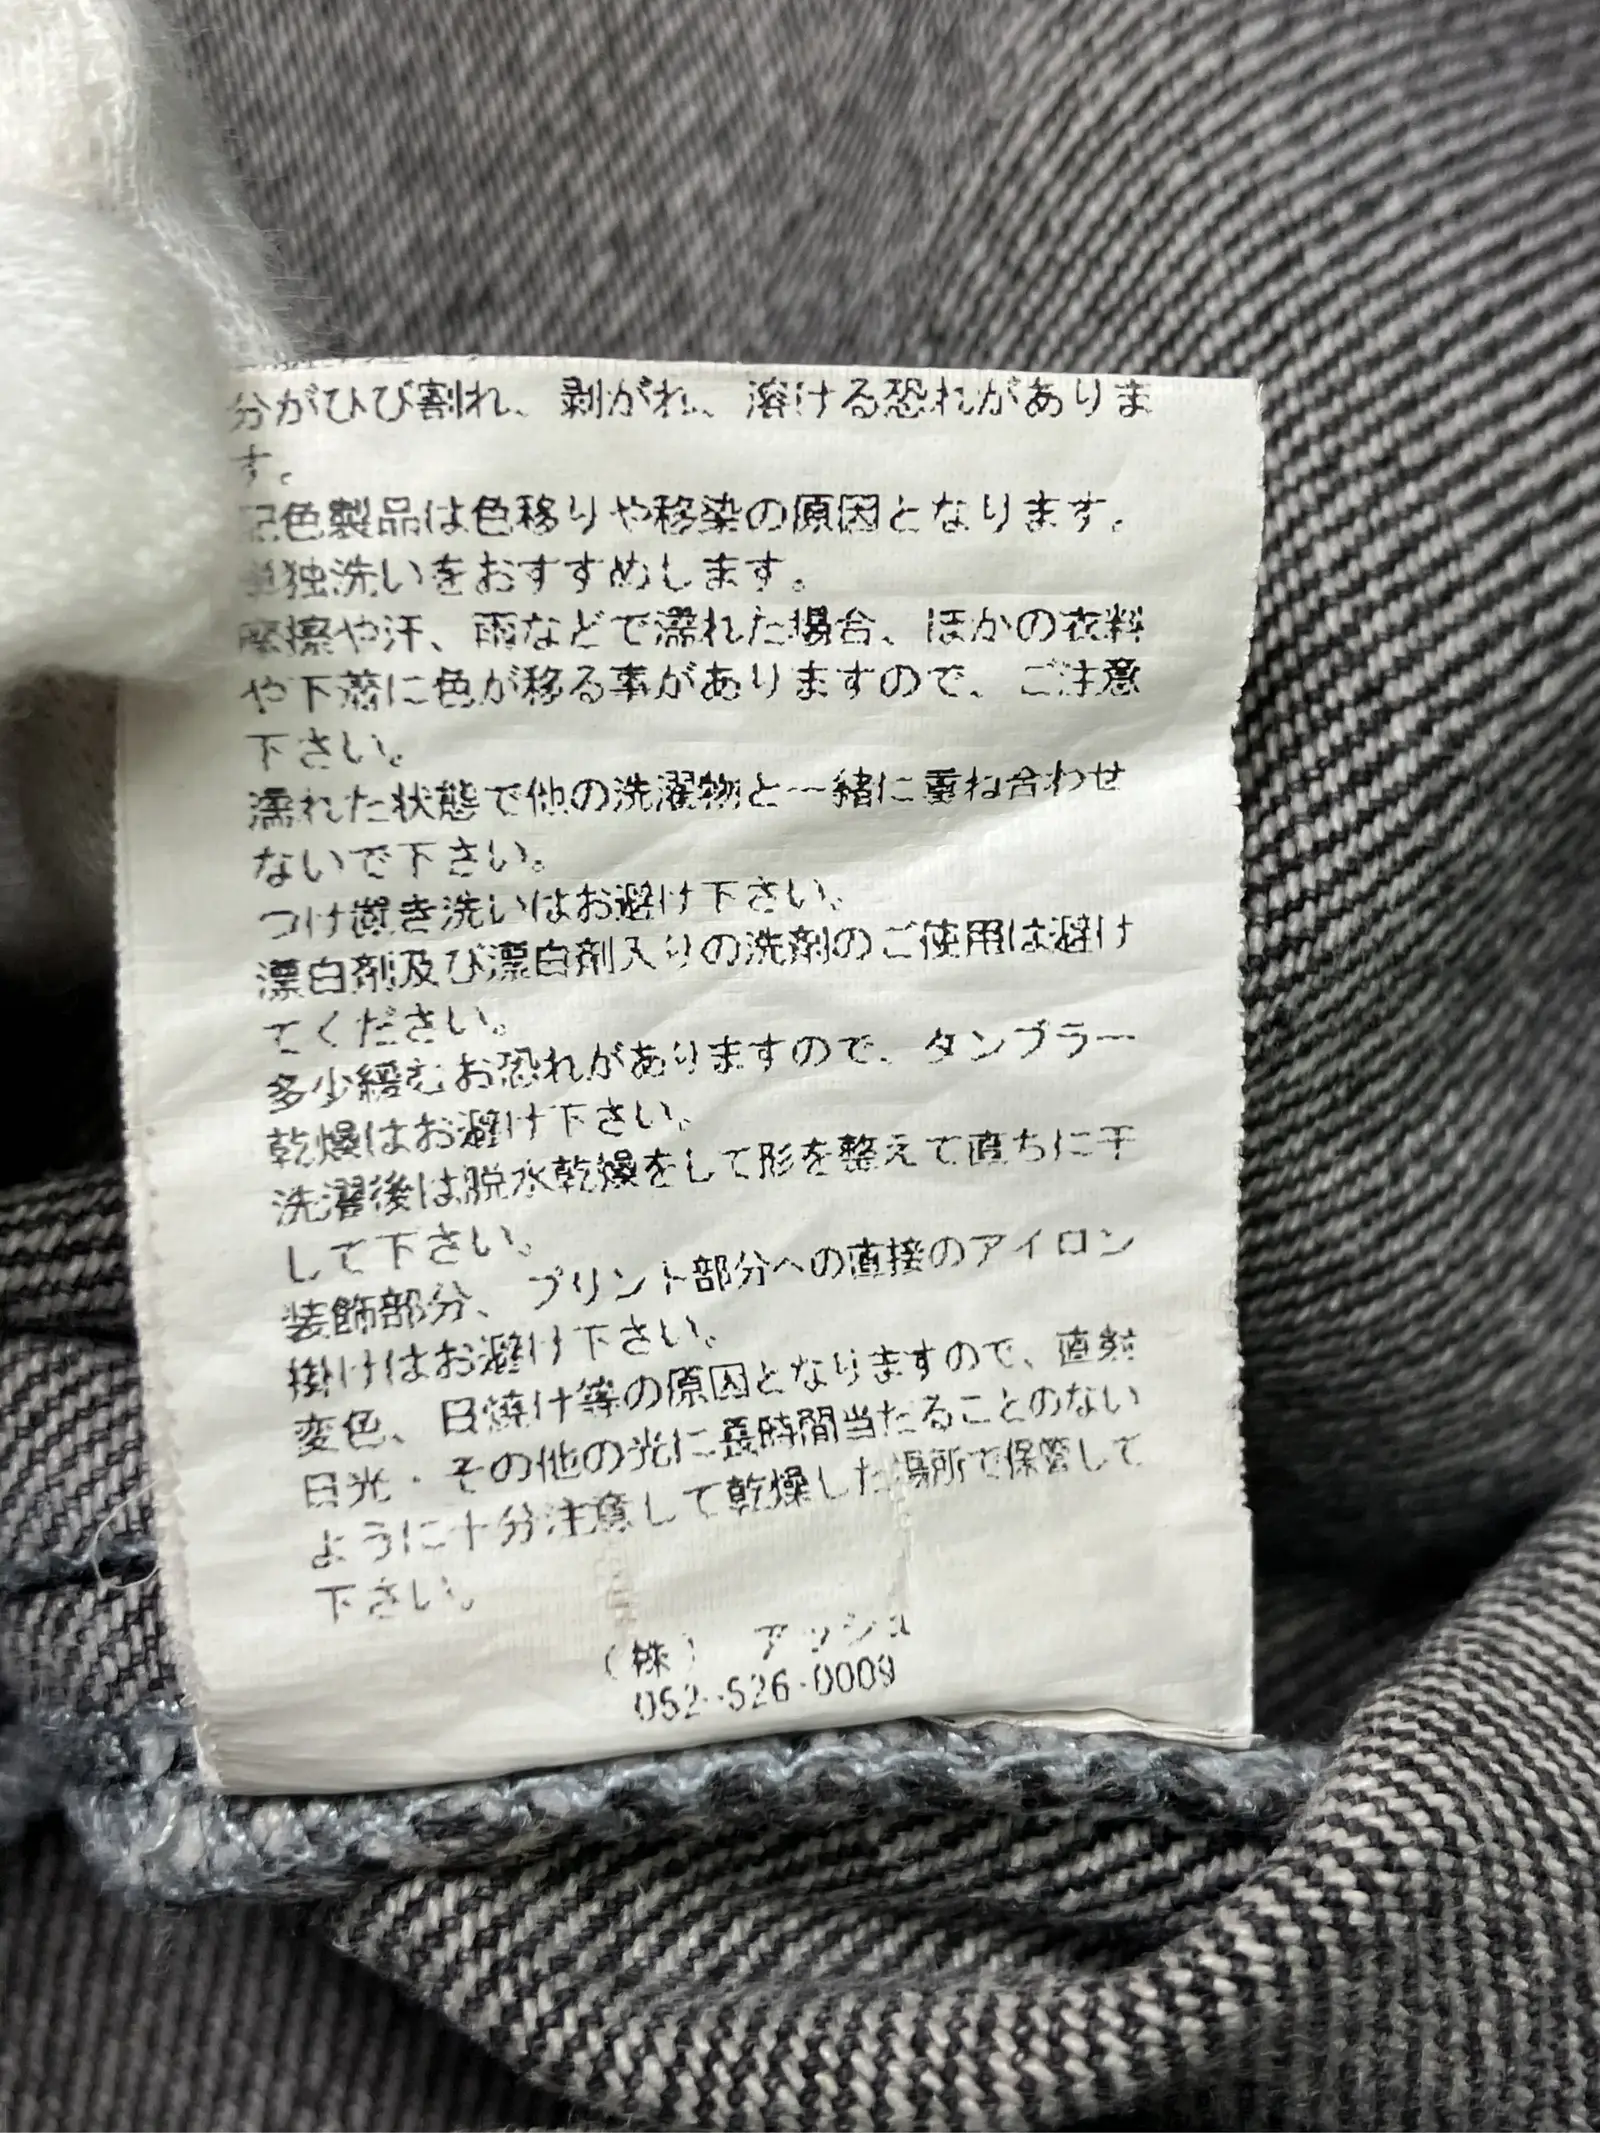 分がひび割れ、剥がれ、溶ける恐れがありま
す。
配色製品は色移りや移染の原因となります。
単独洗いをおすすめします。
摩擦や汗、雨などで濡れた場合、ほかの衣料
や下着に色が移る事がありますので、ご注意
下さい。
濡れた状態で他の洗濯物と一緒に重ね合わせ
ないで下さい。
つけ置き洗いはお避け下さい。
漂白剤及び漂白剤入りの洗剤のご使用は避け
てください。
多少縮むお恐れがありますので、タンブラー
乾燥はお避け下さい。
洗濯後は脱水乾燥をして形を整えて直ちに干
して下さい。
装飾部分、プリント部分への直接のアイロン
掛けはお避け下さい。
変色、日焼け等の原因となりますので、直射
日光・その他の光に長時間当たることのない
ように十分注意して乾燥した場所で保管して
下さい。
(株) アッシュ
052-526-0009